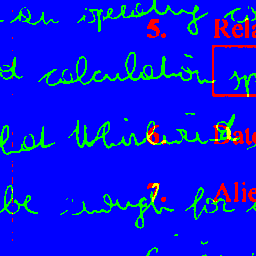 an operating
5. Rela
calculation sp
hat Whirlwind
6. Date
be enough for
7. Alie